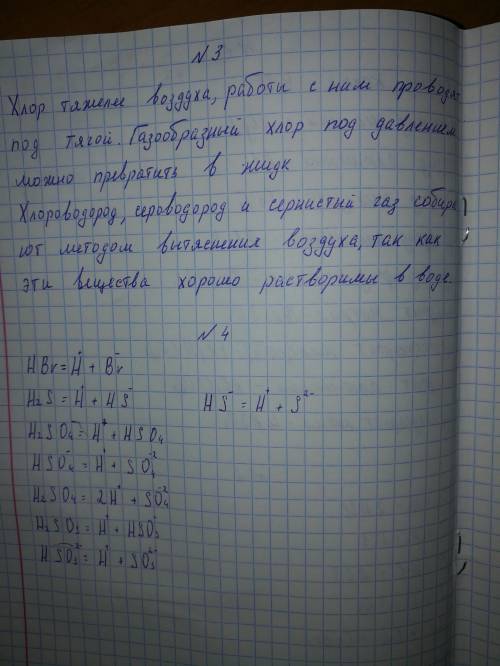 N 3
Хлор тяжелее воздуха, работы с ним проводят
под тягой. Газообразный хлор под давлением
можно превратить в жидк
Хлороводород, сероводород и сернистый газ собира
ют методом вытяснения воздуха, так как
эти вещества хорошо растворимы в воде.
N 4
HBr = H⁺ + Br⁻
H₂S = H⁺ + HS⁻ HS⁻ = H⁺ + S²⁻
H₂SO₄ = H⁺ + HSO₄
HSO₄⁻ = H⁺ + SO₄⁻²
H₂SO₄ = 2H⁺ + SO₄⁻²
H₂SO₃ = H⁺ + HSO₃⁻
HSO₃⁻ = H⁺ + SO₃²⁻